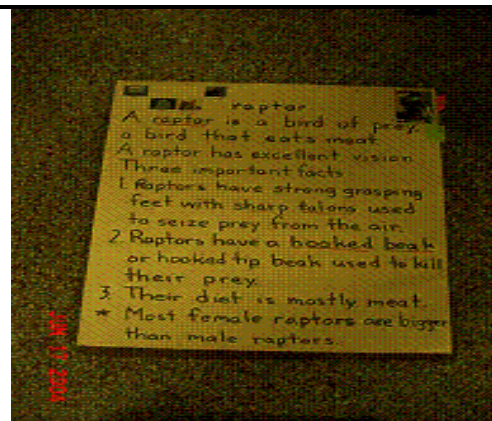 raptor
A raptor is a bird of prey,
a bird that eats meat
A raptor has excellent vision
Three important facts
1. Raptors have strong grasping
feet with sharp talons used
to seize prey from the air.
2. Raptors have a hooked beak
or hooked tip beak used to kill
their prey.
3. Their diet is mostly meat.
* Most female raptors are bigger
than male raptors.
JUN 17 2004